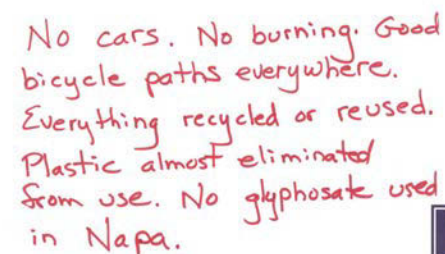 No cars. No burning. Good
bicycle paths everywhere.
Everything recycled or reused.
Plastic almost eliminated
from use. No glyphosate used
in Napa.